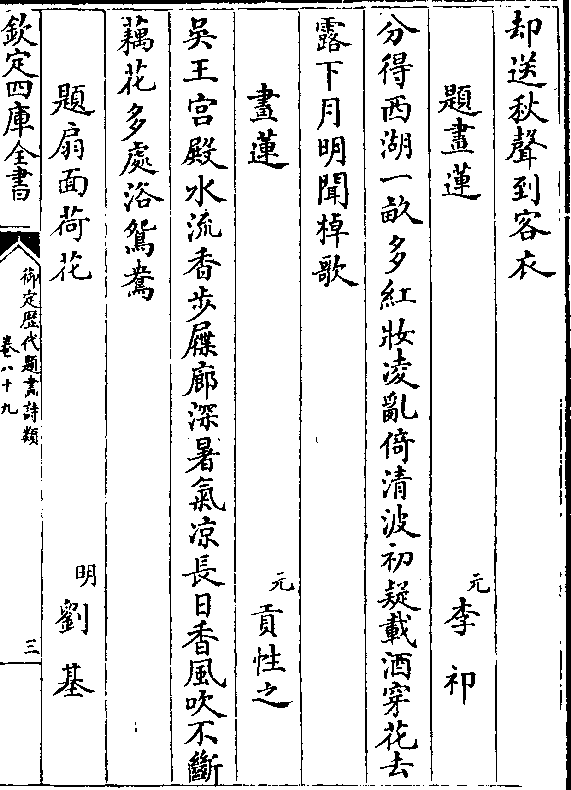 却送秋聲到客衣
題畫蓮 元 李祁
分得西湖一畝多紅妝凌亂倚清波初疑載酒穿花去
露下月明聞棹歌
畫蓮 元 貢性之
吳王宫殿水流香步屧廊深暑氣凉長日香風吹不斷
藕花多處浴鴛鴦
題扇面荷花 明 劉基
欽定四庫全書
御定歴代題畫詩類
卷八十九
三